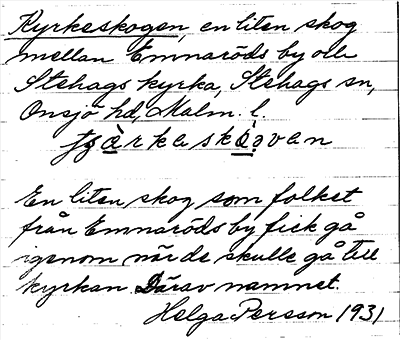 Kyrkeskogen, en liten skog
mellan Emmaröds by och
Stehags kyrka, Stehags sn,
Onsjö hd, Malm. l.
En liten skog som folket
från Emmaröds by fick gå
igenom när de skulle gå till
kyrkan. Därav namnet.
Helga Persson 1931